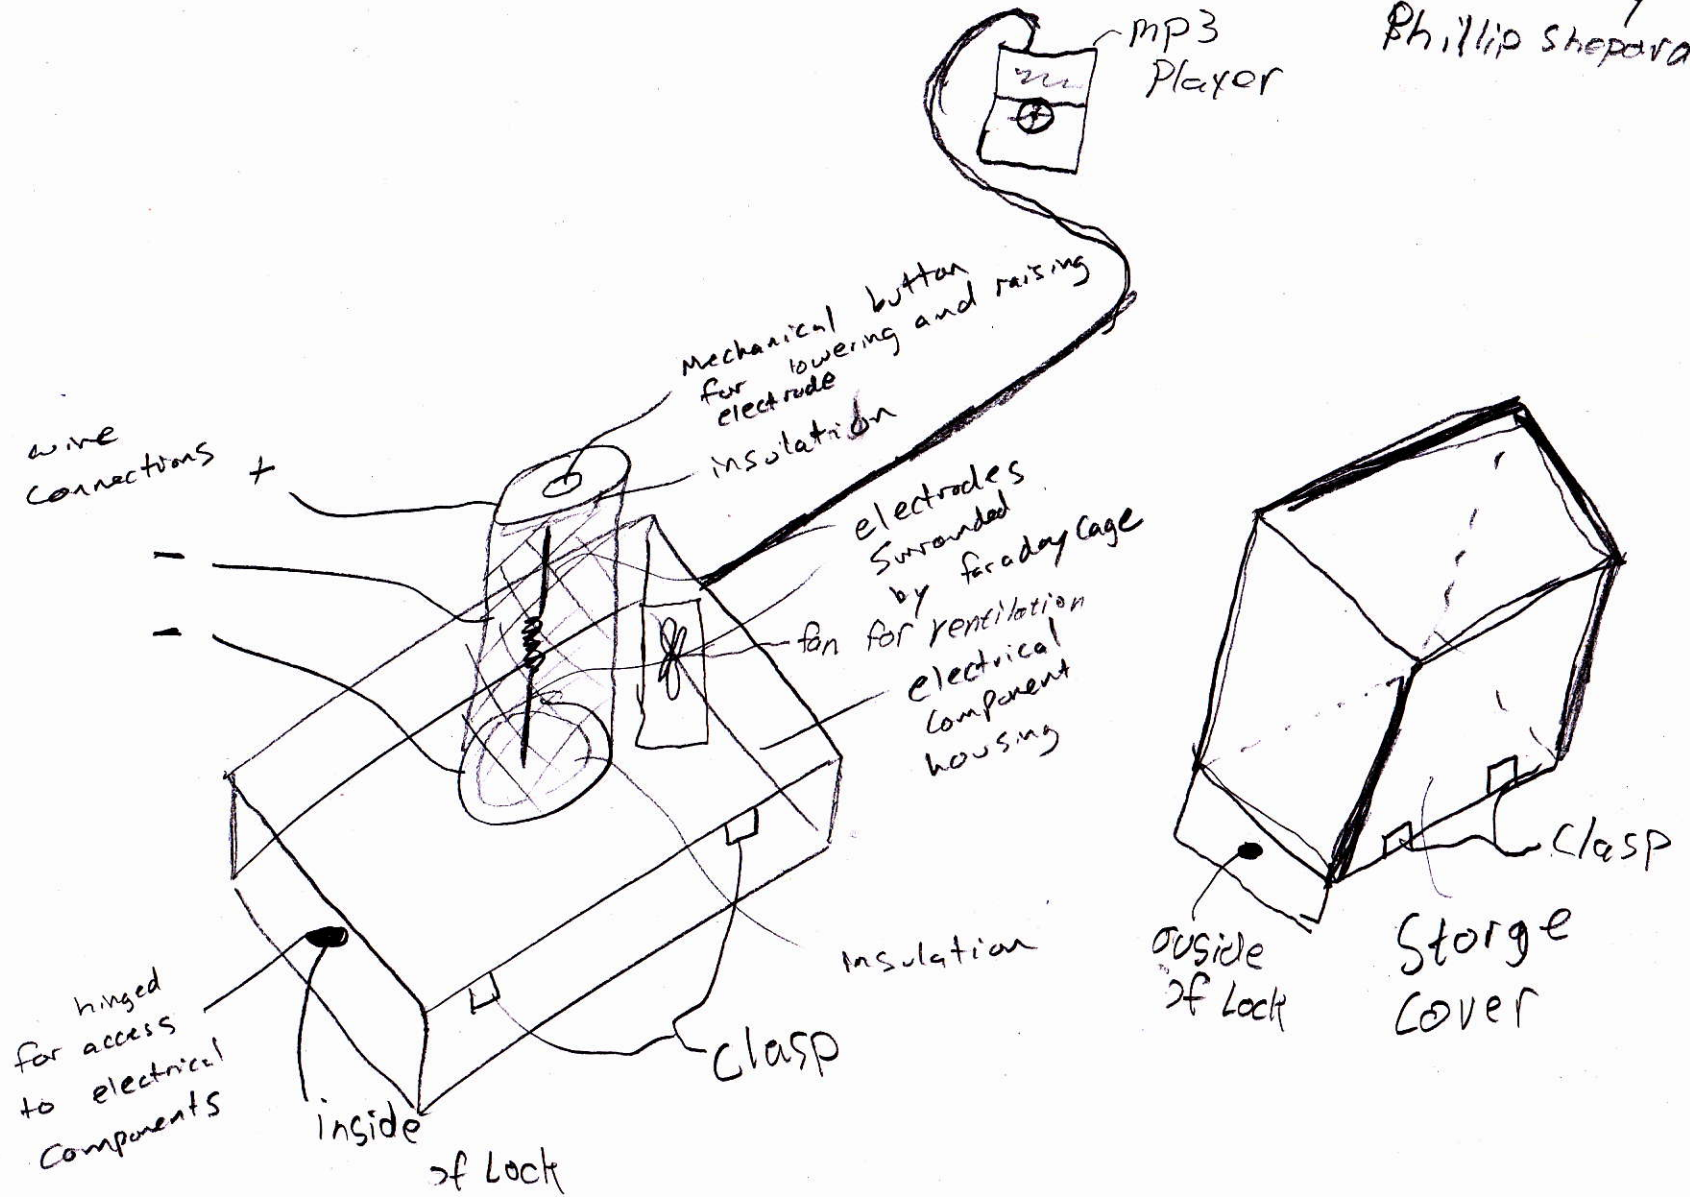 Phillip Shepard
mp3
Player
Mechanical button
for lowering and raising
electrode
insulation
wire
connections +
-
-
electrodes
surrounded
by faraday cage
fan for ventilation
electrical
component
housing
insulation
Clasp
hinged
for access
to electrical
components
inside
of Lock
Clasp
ouside
of Lock
Storge
Cover